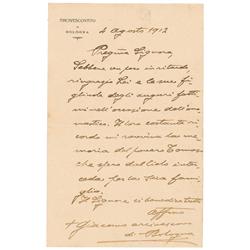 ARCIVESCOVO
DI
BOLOGNA
4 Agosto 1912
Pregma Signora
Sebbene un poco in ritardo
ringrazio Lei e la sua fi
gliuola degli auguri fatti
mi nell'occasione dell'ono
mastico. Il loro costante ri
cordo mi ravviva la me
moria del povero Tomaso
che spero dal Cielo inter
ceda per la sua fami
glia.
Il Signore la benedica tutta
affmo
+ Giacomo arcivescovo
di Bologna